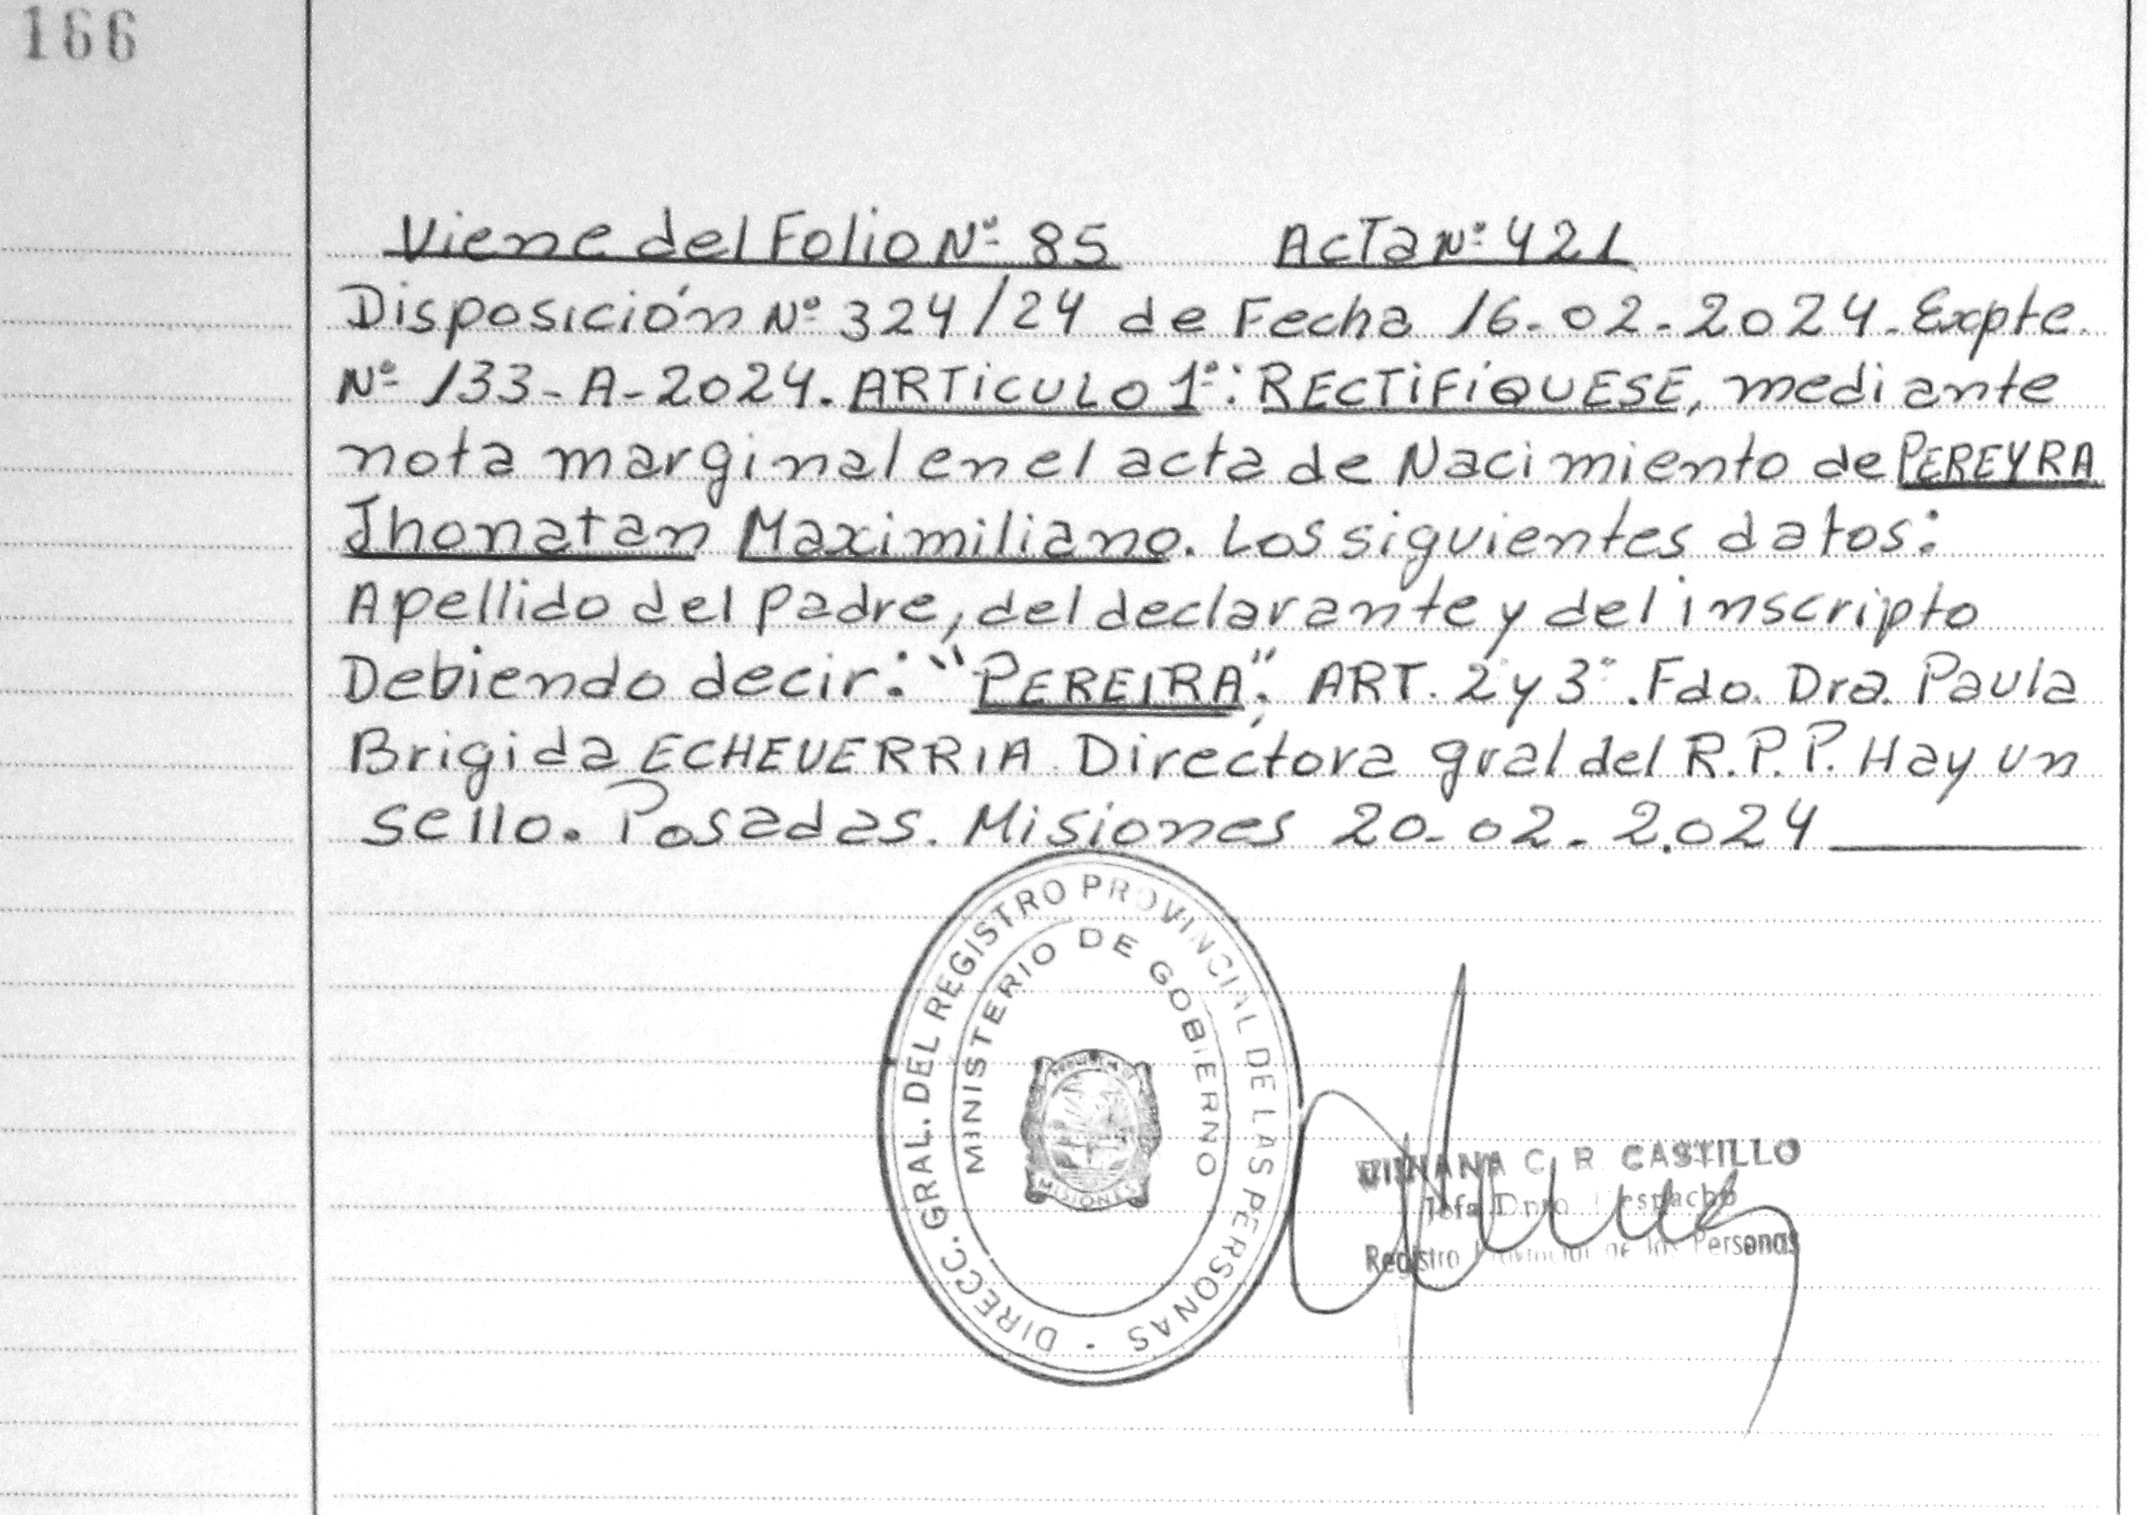 166
Viene del Folio Nº 85 Acta Nº 421
Disposición Nº 324/24 de Fecha 16-02-2024. Expte.
Nº 133-A-2024. ARTICULO 1º: RECTIFIQUESE, mediante
nota marginal en el acta de Nacimiento de PEREYRA
Jhonatan Maximiliano. Los siguientes datos:
Apellido del padre, del declarante y del inscripto
Debiendo decir: "PEREIRA". ART. 2º y 3º. Fdo. Dra. Paula
Brigida ECHEVERRIA. Directora gral del R.P.P. Hay un
sello. Posadas. Misiones 20-02-2.024
DIRECC. GRAL. DEL REGISTRO PROVINCIAL DE LAS PERSONAS -
MINISTERIO DE GOBIERNO
MISIONES
C. R. CASTILLO
Jefa Dpto. Despacho
Registro Provincial de las Personas